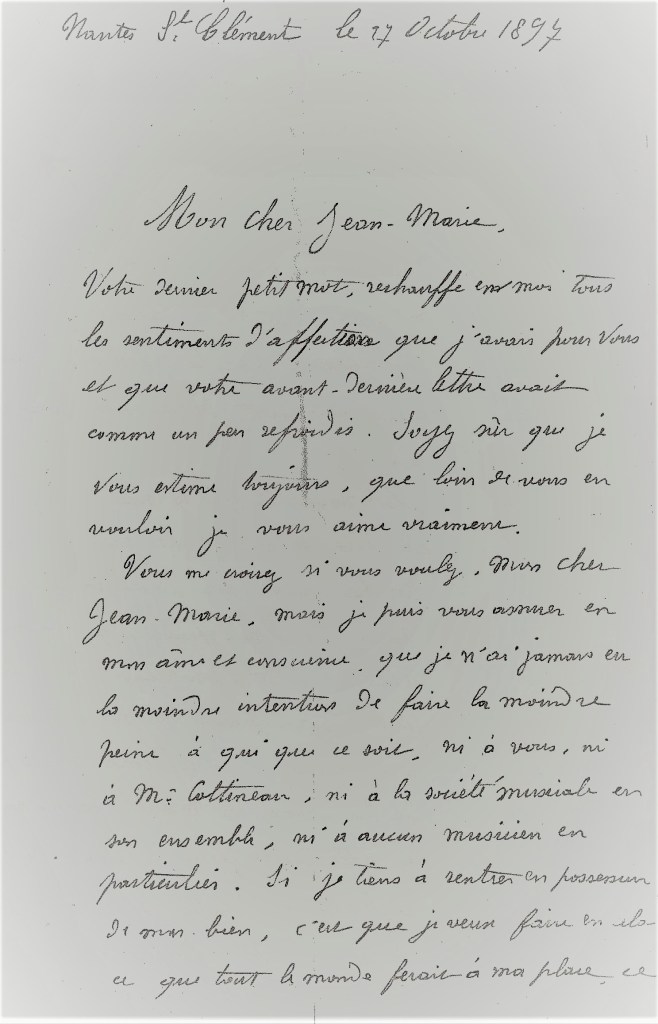 Nantes St. Clément le 27 Octobre 1897
Mon cher Jean-Marie,
Votre dernier petit mot, réchauffe en moi tous
les sentiments d'affection que j'avais pour vous
et que votre avant-dernière lettre avait
comme un peu refroidis. Soyez sûr que je
vous estime toujours, que loin de vous en
vouloir je vous aime vraiment.
Vous me croirez si vous voulez, mon cher
Jean-Marie, mais je puis vous assurer en
mon âme et conscience, que je n'ai jamais eu
la moindre intention de faire la moindre
peine à qui que ce soit, ni à vous, ni
à Mr. Cottineau, ni à la société musicale en
son ensemble, ni à aucun musicien en
particulier. Si je tiens à rentrer en possession
de mon bien, c'est que je veux faire en cela
ce que tout le monde ferait à ma place, ce